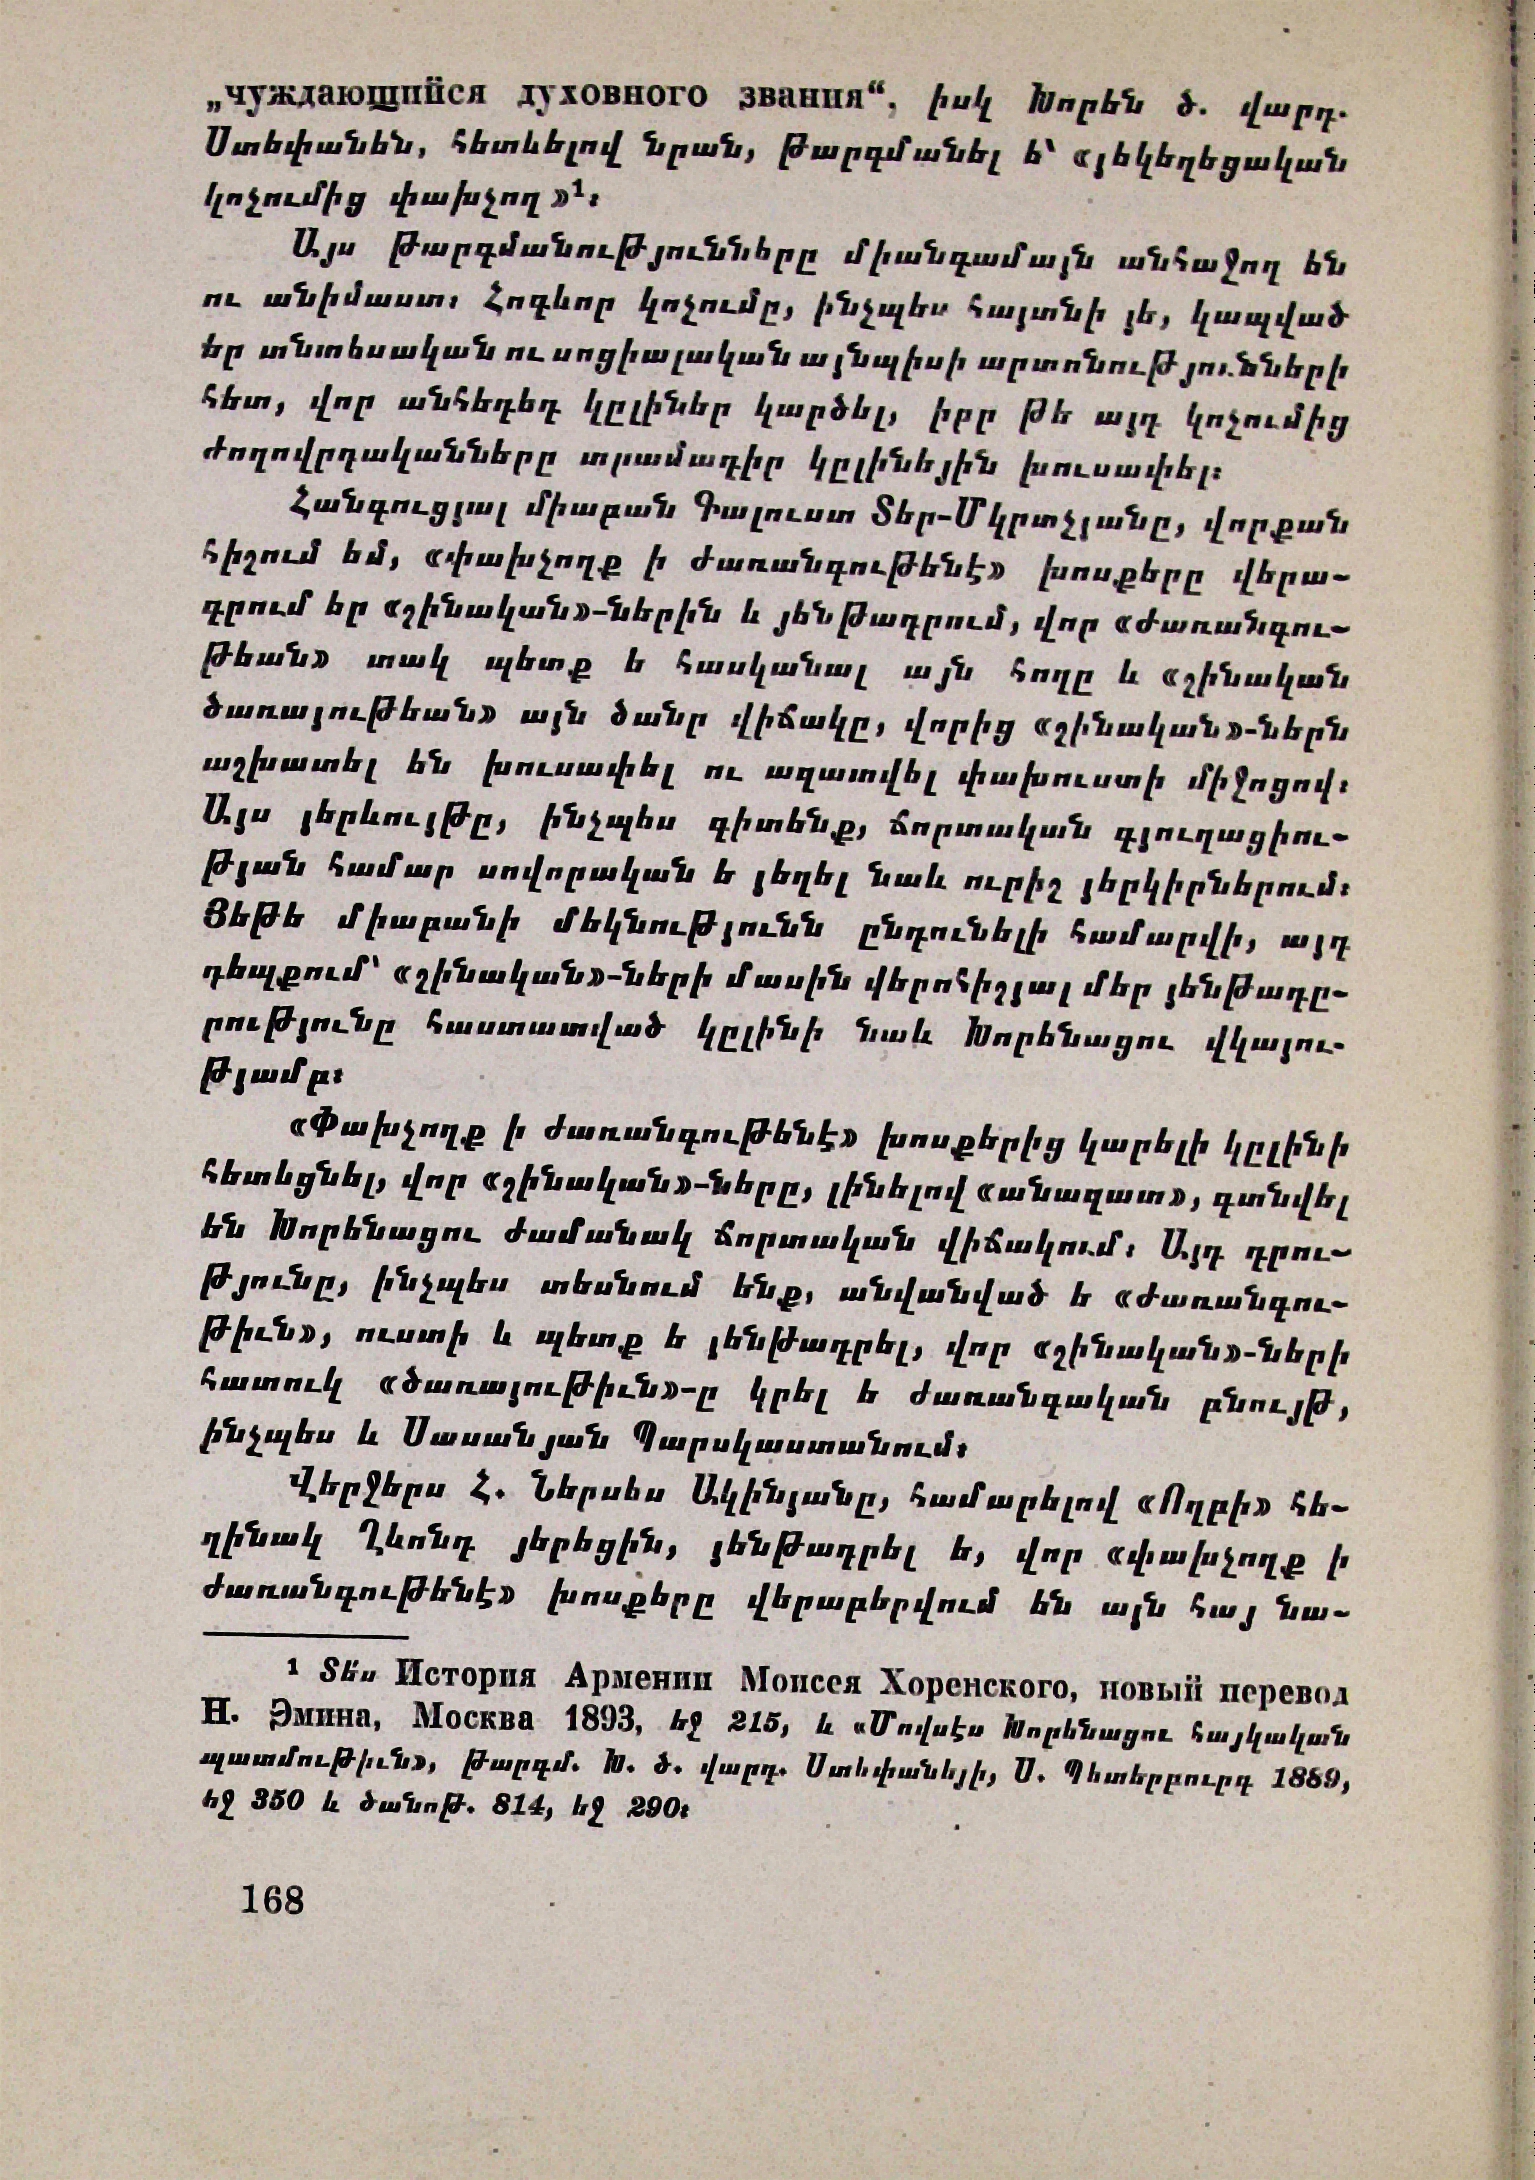 „чуждающийся духовного звания“, իսկ Խորեն ծ. վարդ.
Ստեփանեն, հետևելով նրան, թարգմանել ե՝ «յեկեղեցական
կոչումից փախչող»¹։
Այս թարգմանությունները միանգամայն անհաջող են
ու անիմաստ։ Հոգևոր կոչումը, ինչպես հայտնի յե, կապված
եր տնտեսական ու սոցիալական այնպիսի արտոնությունների
հետ, վոր անհեդեդ կըլիներ կարծել, իբր թե այդ կոչումից
ժողովրդականները տրամադիր կըլինեյին խուսափել։
Հանգուցյալ միաբան Գալուստ Տեր-Մկրտչյանը, վորքան
հիշում եմ, «փախչողք ի ժառանգութենէ» խոսքերը վերա-
գրում եր «շինական»-ներին և յենթադրում, վոր «ժառանգու-
թեան» տակ պետք ե հասկանալ այն հողը և «շինական
ծառայութեան» այն ծանր վիճակը, վորից «շինական»-ներն
աշխատել են խուսափել ու ազատվել փախուստի միջոցով։
Այս յերևույթը, ինչպես գիտենք, ճորտական գյուղացիու-
թյան համար սովորական ե յեղել նաև ուրիշ յերկիրներում։
Յեթե միաբանի մեկնությունն ընդունելի համարվի, այդ
դեպքում՝ «շինական»-ների մասին վերոհիշյալ մեր յենթադը-
րությունը հաստատված կըլինի նաև Խորենացու վկայու-
թյամբ։
«Փախչողք ի ժառանգութենէ» խոսքերից կարելի կըլինի
հետևցնել, վոր «շինական»-ները, լինելով «անազատ», գտնվել
են Խորենացու ժամանակ ճորտական վիճակում։ Այդ դրու-
թյունը, ինչպես տեսնում ենք, անվանված ե «ժառանգու-
թիւն», ուստի և պետք ե յենթադրել, վոր «շինական»-ների
հատուկ «ծառայութիւն»-ը կրել ե ժառանգական բնույթ,
ինչպես և Սասանյան Պարսկաստանում։
Վերջերս Հ. Ներսես Ակինյանը, համարելով «Ողբի» հե-
ղինակ Ղևոնդ յերեցին, յենթադրել ե, վոր «փախչողք ի
ժառանգութենէ» խոսքերը վերաբերվում են այն հայ նա-
¹ Տե՛ս История Армении Моисея Хоренского, новый перевод
Н. Эмина, Москва 1893, եջ 215, և «Մովսէս Խորենացու հայկական
պատմութիւն», թարգմ. Խ. ծ. վարդ. Ստեփանեյի, Ս. Պետերբուրգ 1889,
եջ 350 և ծանոթ. 814, եջ 290։
168